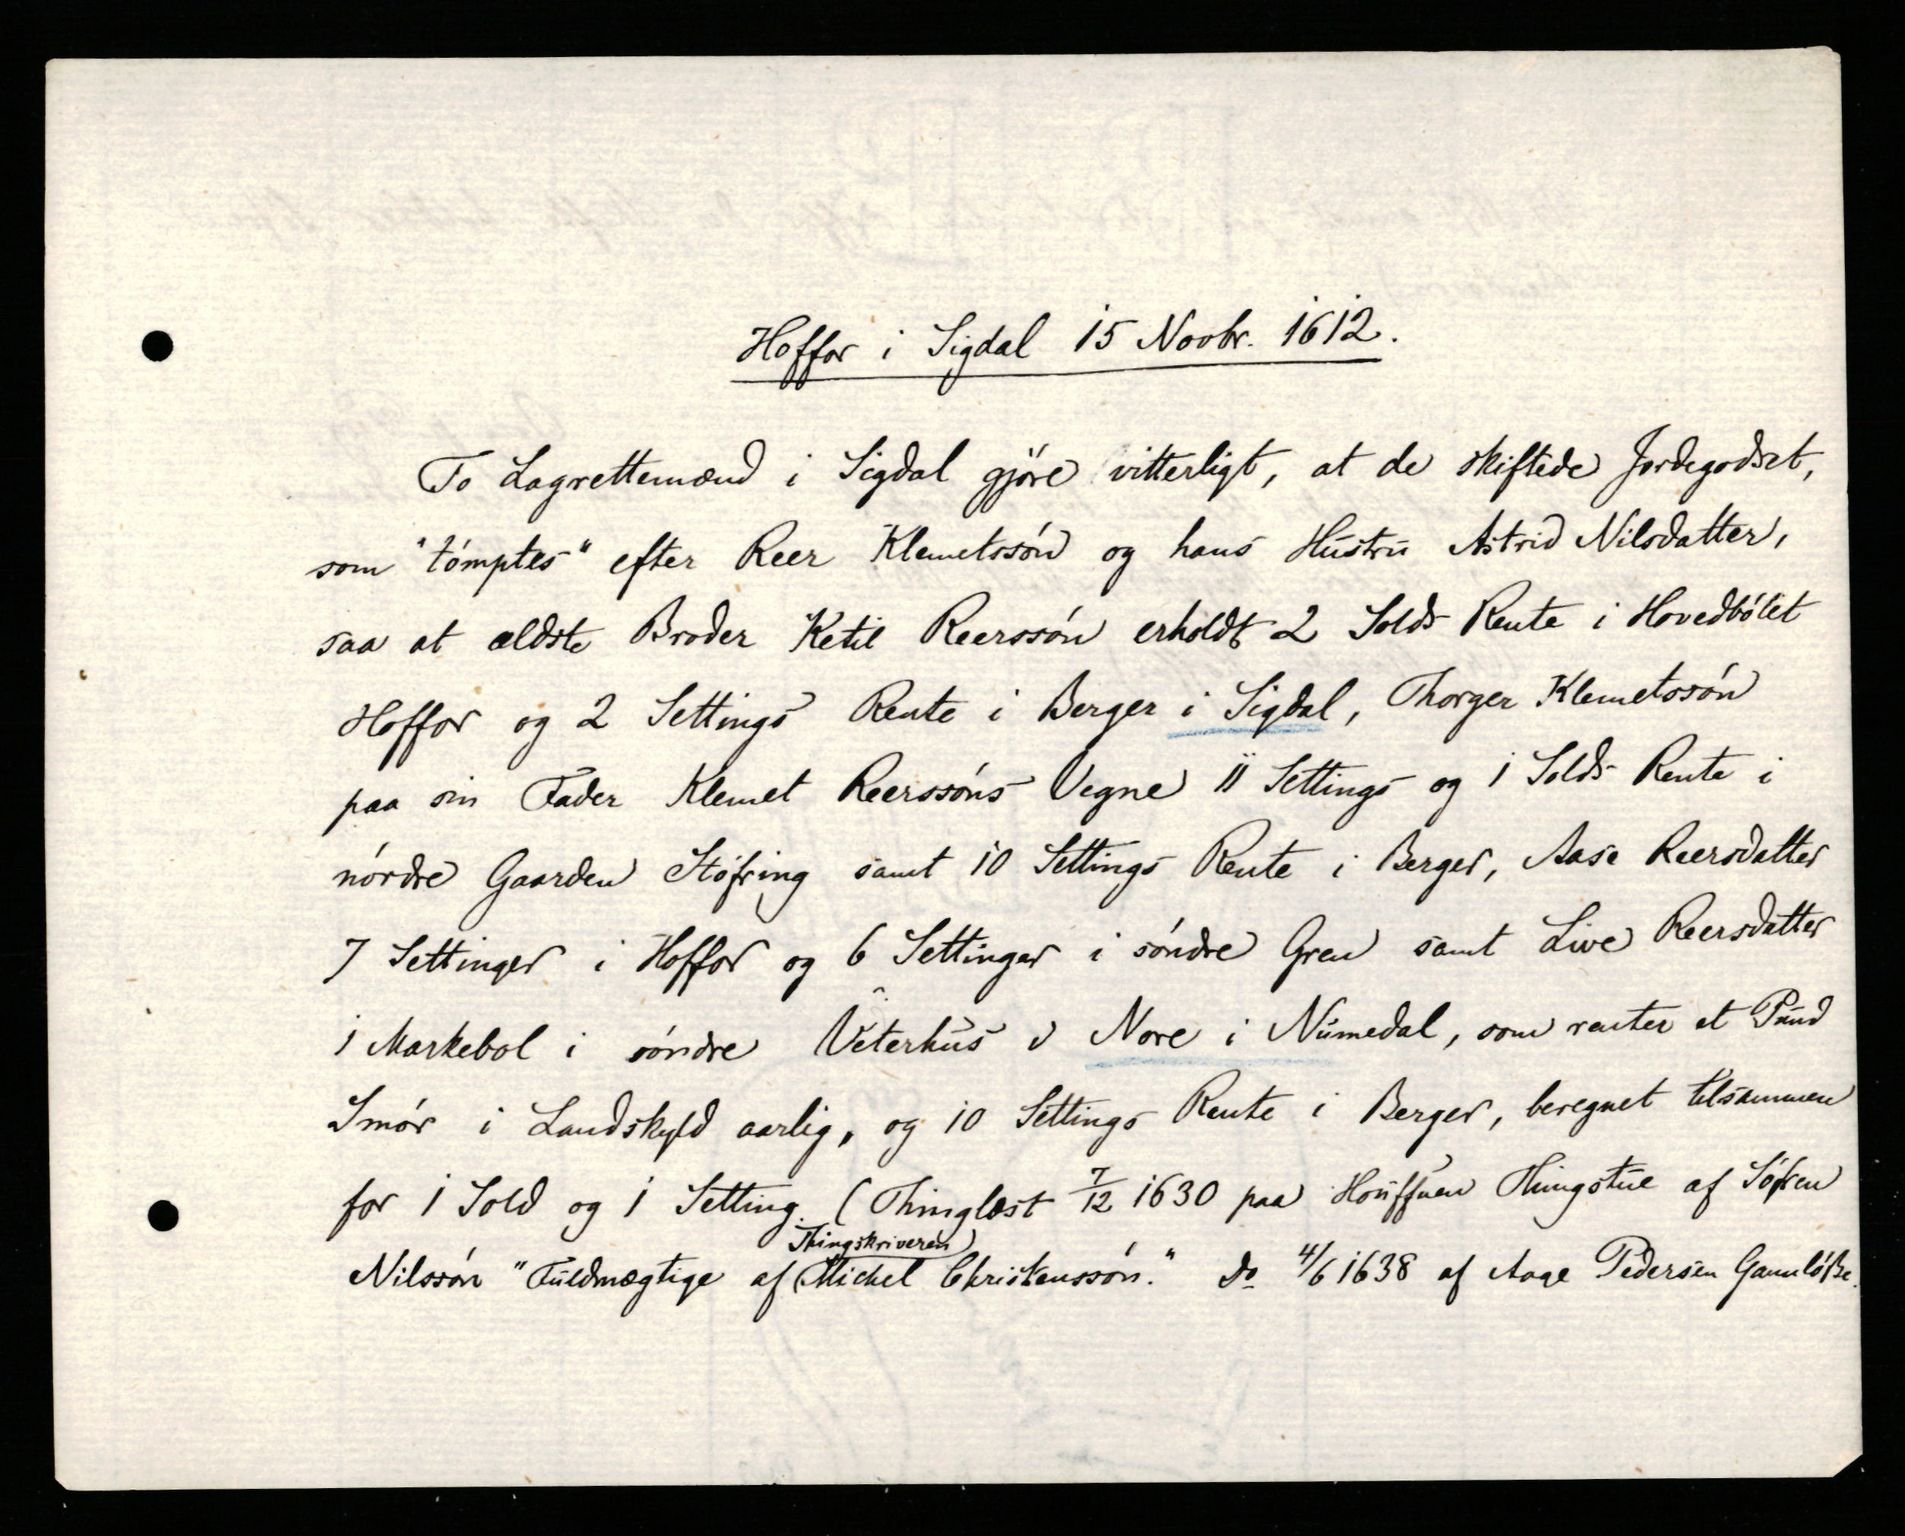 Hoffor i Sigdal 15 Novbr. 1612.
To Lagrettemænd i Sigdal gjöre vitterligt, at de skiftede Jordegodset,
som "tómptes" efter Reer Klemetssón og hans Hustru Astrid Nilsdatter,
saa at ældste Broder Ketil Reerssón erholdt 2 Solds Rente i Hovedbólet
Hoffor og 2 Settings Rente i Berger i Sigdal, Thorger Klemetssón
paa sin Fader Klemet Reerssóns Vegne 11 Settings og 1 Solds Rente i
nórdre Gaarden Stófring samt 10 Settings Rente i Berger, Aase Reersdatter
7 Settinger i Hoffor og 6 Settinger i sóndre Gren samt Live Reersdatter
1 Markebol i sóndre Veterhus i Nore i Numedal, som renter et Pund
Smór i Landskyld aarlig, og 10 Settings Rente i Berger, beregnet tilsammen
for 1 Sold og 1 Setting. (Thinglæst 7/12 1630 paa Houffuen Thingstue af Sófren
Thingskriveren
Nilssón "Fuldmægtige af Michel Christenssón." Do 4/6 1638 af Aage Pedersen Gamlóße.